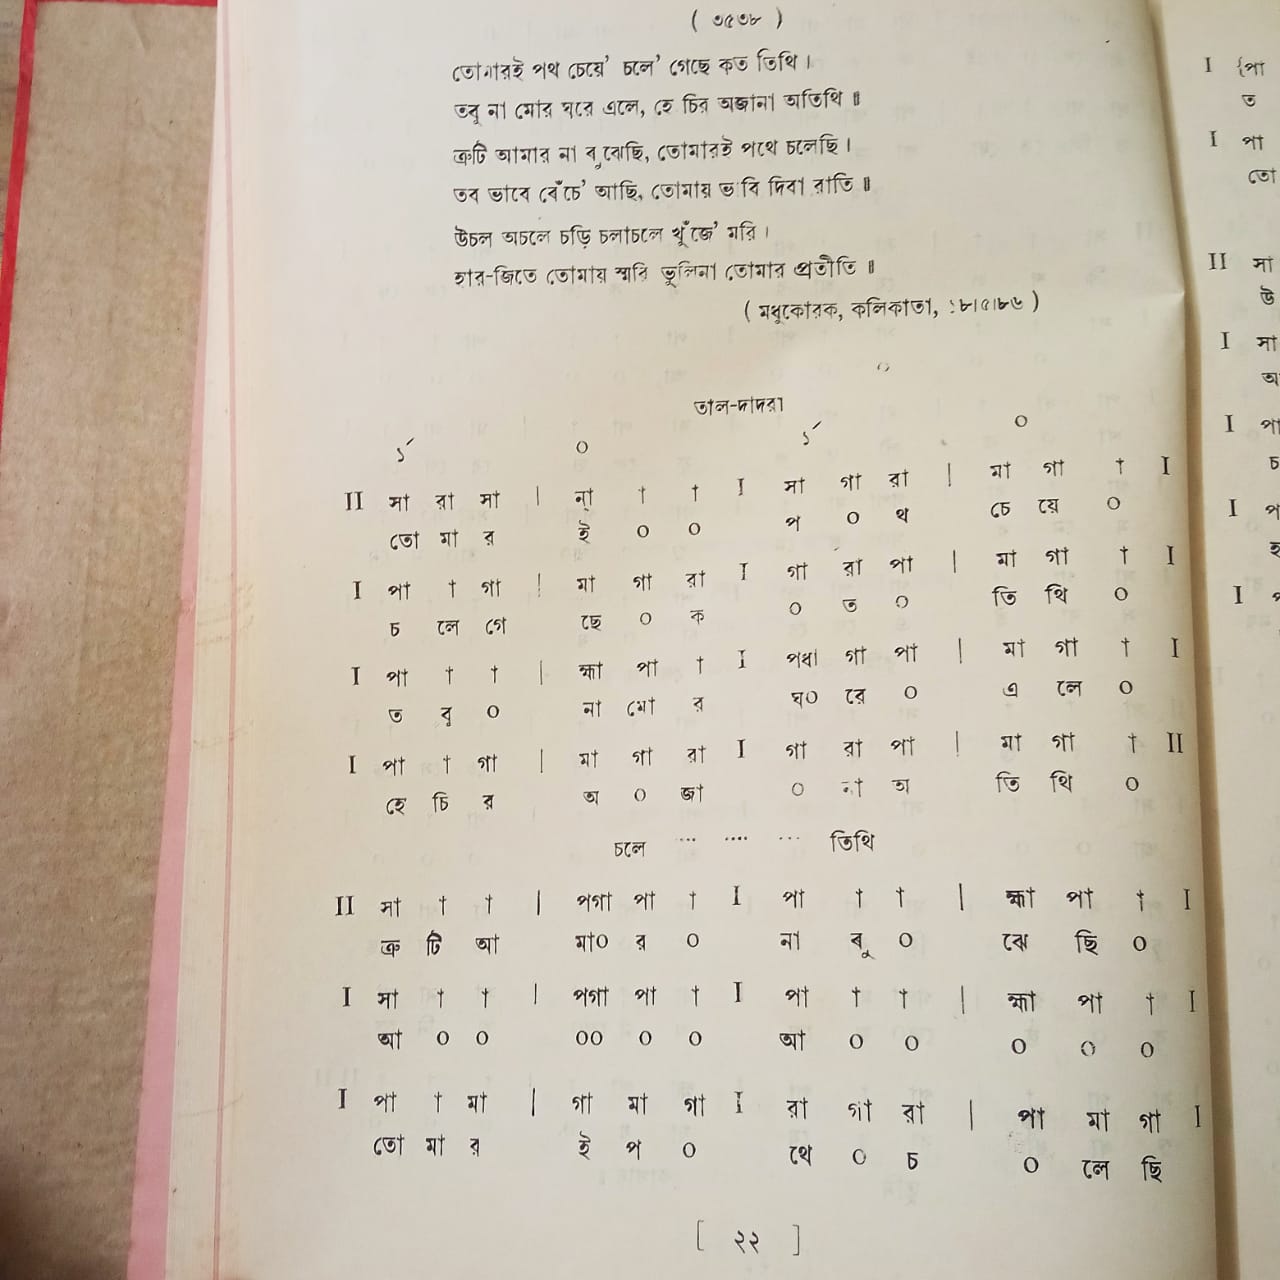 ( ৩৫৩৮ )
তোমারই পথ চেয়ে' চলে' গেছে কত তিথি ।
তবু না মোর ঘরে এলে, হে চির অজানা অতিথি ॥
ত্রুটি আমার না বুঝেছি, তোমারই পথে চলেছি ।
তব ভাবে বেঁচে' আছি, তোমায় ভাবি দিবা রাতি ॥
উচল অচলে চড়ি চলাচলে খুঁজে' মরি ।
হার-জিতে তোমায় স্মরি ভুলিনা তোমার প্রতীতি ॥
( মধুকোরক, কলিকাতা, ১৮।৫।৮৬ )
তাল-দাদরা
১´ ০ ১´ ০
II মা রা মা | না্ † † I মা গা রা | মা গা † I
তো মা র ই ০ ০ প ০ থ চে য়ে ০
I পা † গা | মা গা রা I গা রা পা | মা গা † I
চ লে গে ছে ০ ক ০ ত ০ তি থি ০
I পা † † | হ্মা পা † I পধা গা পা | মা গা † I
ত বু ০ না মো র ঘ০ রে ০ এ লে ০
I পা † গা | মা গা রা I গা রা পা | মা গা † II
হে চি র অ ০ জা ০ না অ তি থি ০
চলে ... .... ... তিথি
II মা † † | পগা পা † I পা † † | হ্মা পা † I
ত্রু টি আ মা০ র ০ না বু ০ ঝে ছি ০
I মা † † | পগা পা † I পা † † | হ্মা পা † I
আ ০ ০ ০০ ০ ০ আ ০ ০ ০ ০ ০
I পা † মা | গা মা গা I রা গা রা | পা মা গা I
তো মা র ই প ০ থে ০ চ ০ লে ছি
[ ২২ ]
I {পা
ত
I পা
তো
II মা
উ
I মা
অ
I পা
চ
I
I